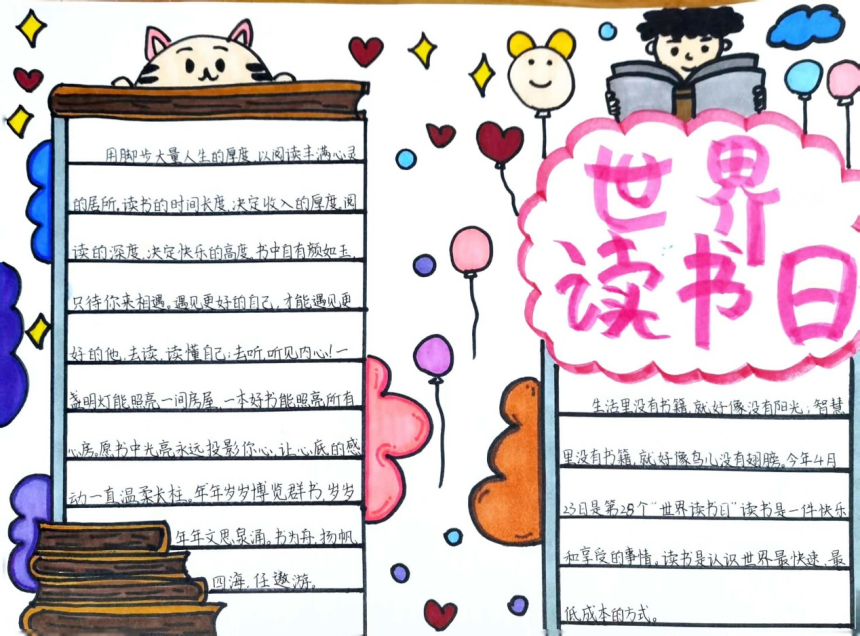 世界
读书日
用脚步大量人生的厚度,以阅读丰满心灵
的居所,读书的时间长度,决定收入的厚度,阅
读的深度,决定快乐的高度。书中自有颜如玉,
只待你来相遇。遇见更好的自己,才能遇见更
好的他,去读,读懂自己;去听,听见内心!一
盏明灯能照亮一间房屋,一本好书能照亮所有
心房。愿书中光亮永远投影你心,让心底的感
动一直温柔长柱。年年岁岁博览群书,岁岁
年年文思泉涌。书为舟,扬帆
四海,任遨游。
生活里没有书籍,就好像没有阳光;智慧
里没有书籍,就好像鸟儿没有翅膀。今年4月
23日是第28个“世界读书日”读书是一件快乐
和享受的事情。读书是认识世界最快速,最
低成本的方式。